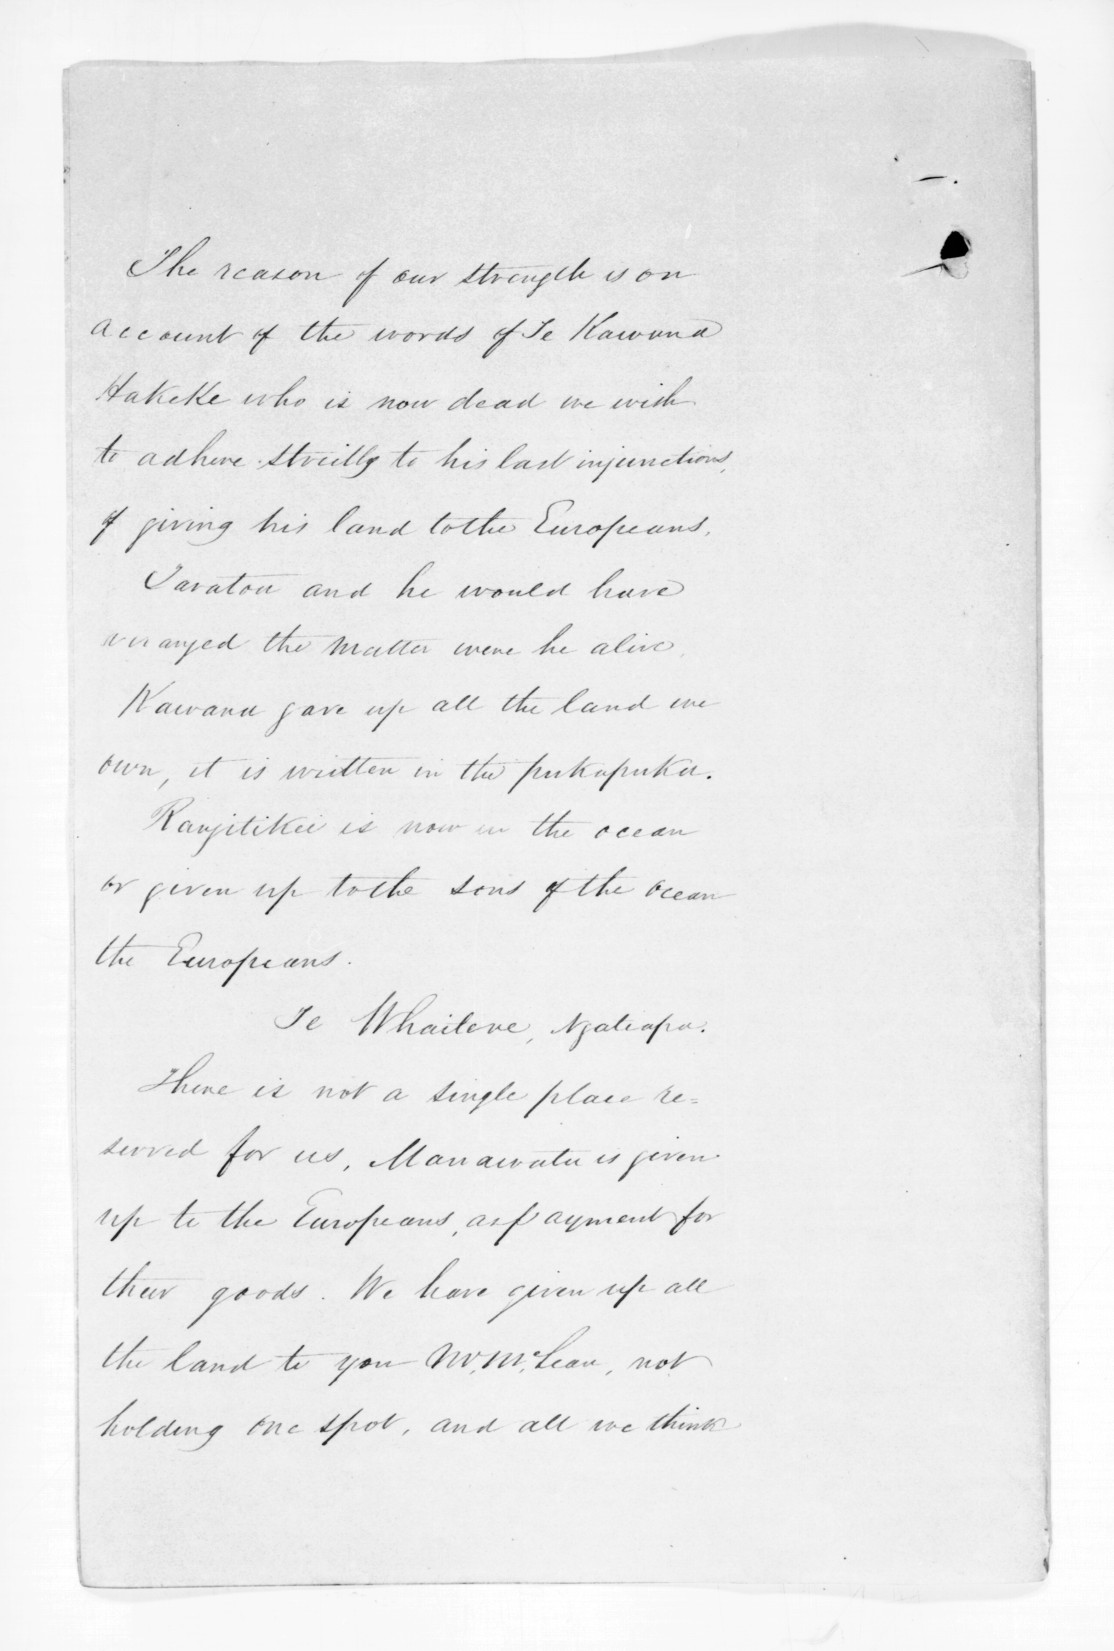 The reason of our strength is on
account of the words of Te Kawana
Hakeke who is now dead we wish
to adhere strictly to his last injunctions,
of giving his land to the Europeans.
Taratoa and he would have
arranged the matter were he alive.
Kawana gave up all the land we
own, it is written in the pukapuka.
Rangitikei is now in the ocean
or given up to the sons of the ocean
the Europeans.
Te Whaitere, Ngatiapa.
There is not a single place re=
served for us, Manawatu is given
up to the Europeans, as payment for
their goods. We have given up all
the land to you Mr. McLean, not
holding one spot, and all we think